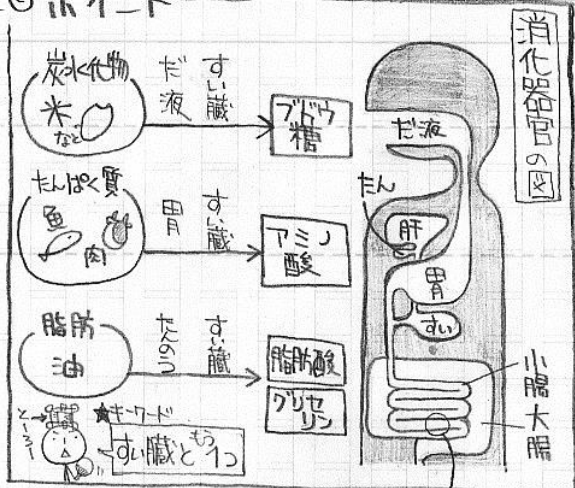 消化器官の図
炭水化物
米
など
だ液
すい臓
ブドウ
糖
たんぱく質
魚
肉
胃
すい臓
アミノ
酸
脂肪
油
たんのう
すい臓
脂肪酸
グリセ
リン
★キーワード
すい臓ともう1つ
だ液
たん
肝
胃
すい
小腸
大腸